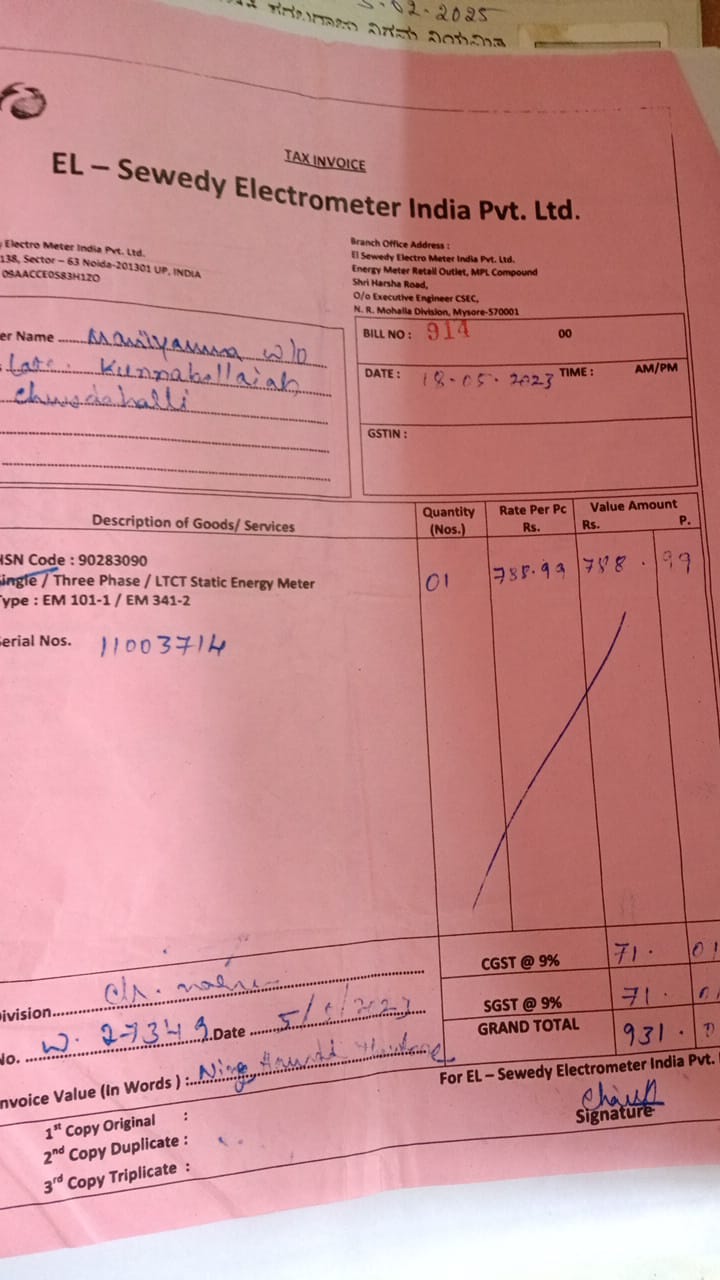 5-02-2025
ನಿಗಮ ನಿಯಮಿತ
TAX INVOICE
EL – Sewedy Electrometer India Pvt. Ltd.
Electro Meter India Pvt. Ltd.
138, Sector – 63 Noida-201301 UP, INDIA
09AACCE0583H1ZO
Branch Office Address :
El Sewedy Electro Meter India Pvt. Ltd.
Energy Meter Retail Outlet, MPL Compound
Shri Harsha Road,
O/o Executive Engineer CSEC,
N. R. Mohalla Division, Mysore-570001
er Name ...... w/o
Late.
BILL NO : 914 00
DATE : 18-05-2023 TIME : AM/PM
GSTIN :
Description of Goods/ Services Quantity (Nos.) Rate Per Pc Rs. Value Amount Rs. P.
HSN Code : 90283090
Single / Three Phase / LTCT Static Energy Meter 01 788.99 788.99
Type : EM 101-1 / EM 341-2
Serial Nos. 11003714
CGST @ 9% 71. 01
SGST @ 9% 71.
GRAND TOTAL 931.
ivision
No. W. 27349 Date 5/5/2023
nvoice Value (In Words) :
For EL – Sewedy Electrometer India Pvt.
Signature
1st Copy Original :
2nd Copy Duplicate :
3rd Copy Triplicate :